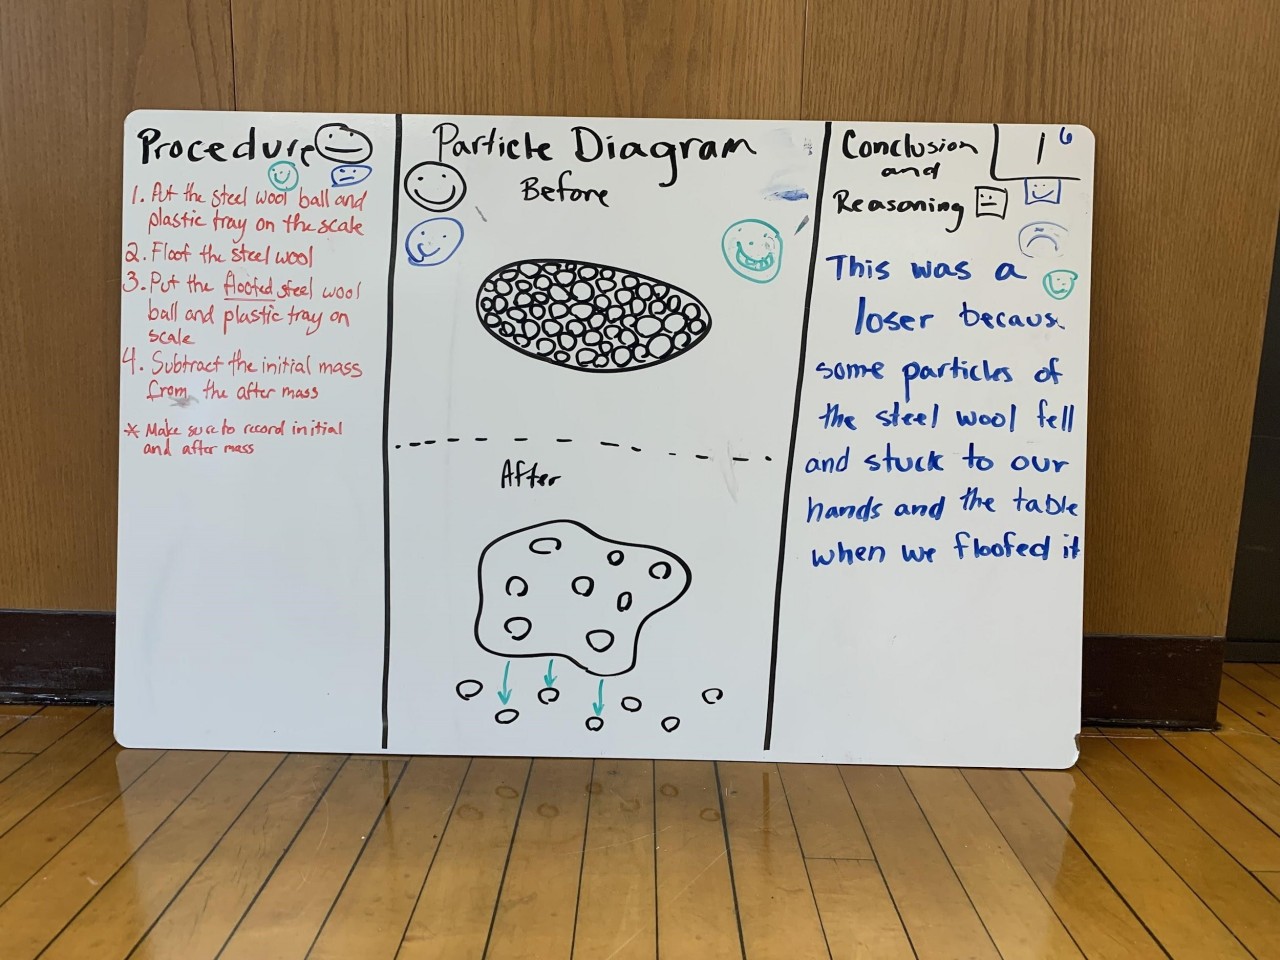 Procedure
1. Put the steel wool ball and
plastic tray on the scale
2. Floof the steel wool
3. Put the floofed steel wool
ball and plastic tray on
scale
4. Subtract the initial mass
from the after mass
* Make sure to record initial
and after mass
Particle Diagram
Before
After
Conclusion
and
Reasoning
1 6
This was a
loser becaus
some particles of
the steel wool fell
and stuck to our
hands and the table
when we floofed it